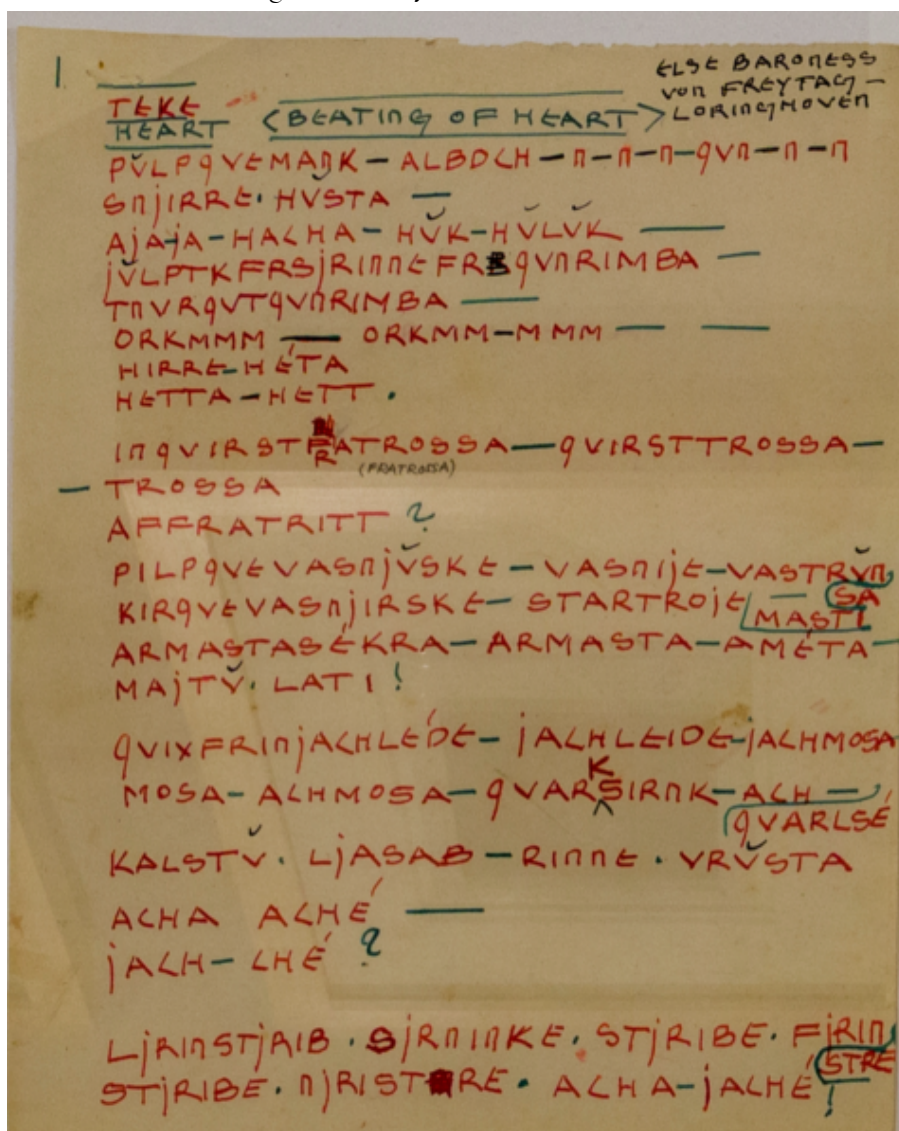 1
ELSE BARONESS
VON FREYTAG —
LORINGHOVEN
TEKE
HEART <BEATING OF HEART>
PŬLPQVEMANK — ALBDCH — n — n — n — QVN — n — n
SNJIRRE · HŬSTA —
AJA-JA — HACHA — HŬK — HŬLŬK —
JŬLPTKFRSJRINNEFRBQVNRIMBA —
TNVRQVTQVNRIMBA —
ORKMMM — ORKMM—MMM — —
HIRRE—HÉTA
HETTA — HETT .
INQVIRSTFRATROSSA — QVIRSTTROSSA —
(FRATROSSA)
— TROSSA
AFFRATRITT ?
PILPQVEVASNJŬSKE — VASNIJE — VASTRŬN
SA
KIRQVEVASNJIRSKE — STARTROJE —
MASTI
ARMASTASÉKRA — ARMASTA — AMÉTA —
MAJTŬ · LATI !
QVIXFRINJACHLÉDE — JACHLEIDE — JACHMOSA
K
MOSA — ACHMOSA — QVARSIRNK — ACH —
QVARLSÉ
KALSTŬ · LJASAB — RINNE · VRŬSTA
ACHA ACHÉ —
JACH — CHÉ ?
LJRINSTJRIB · SJRNINKE · STJRIBE · FJRIN
STRE
STJRIBE · NJRISTRE · ACHA — JACHÉ !